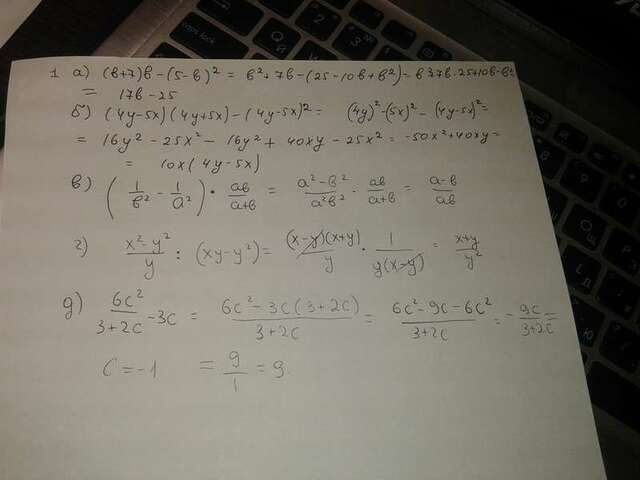 1 а) (в+7)в-(5-в)² = в²+7в-(25-10в+в²)=в²+7в-25+10в-в²
= 17в-25
б) (4y-5x)(4y+5x)-(4y-5x)²= (4y)²-(5x)²-(4y-5x)²=
= 16y²-25x²-16y²+40xy-25x²=-50x²+40xy=
= 10x(4y-5x)
в) (1/в² - 1/a²) · aв/(a+в) = (a²-в²)/(a²в²) · aв/(a+в) = (a-в)/(aв)
г) (x²-y²)/y : (xy-y²)= (x-y)(x+y)/y · 1/(y(x-y)) = (x+y)/y²
д) 6c²/(3+2c) -3c = (6c²-3c(3+2c))/(3+2c) = (6c²-9c-6c²)/(3+2c) = -9c/(3+2c) =
c=-1 = 9/1 = 9.